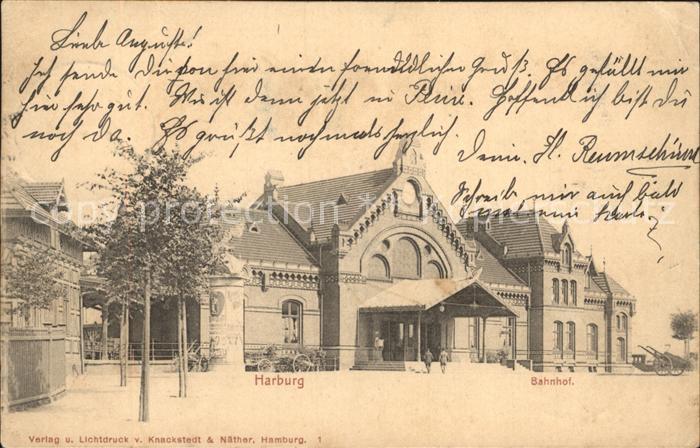 Liebe Auguste!
Ich sende Dir von hier einen freundlichen Gruß. Es gefällt mir
hier sehr gut. Wie ist denn jetzt in Hoffentlich bist Du
noch da. Es grüßt nochmals herzlich
Deine H.
Schreib mir auch bald
mal eine Karte.
Harburg
Bahnhof.
Verlag u. Lichtdruck v. Knackstedt & Näther, Hamburg. 1